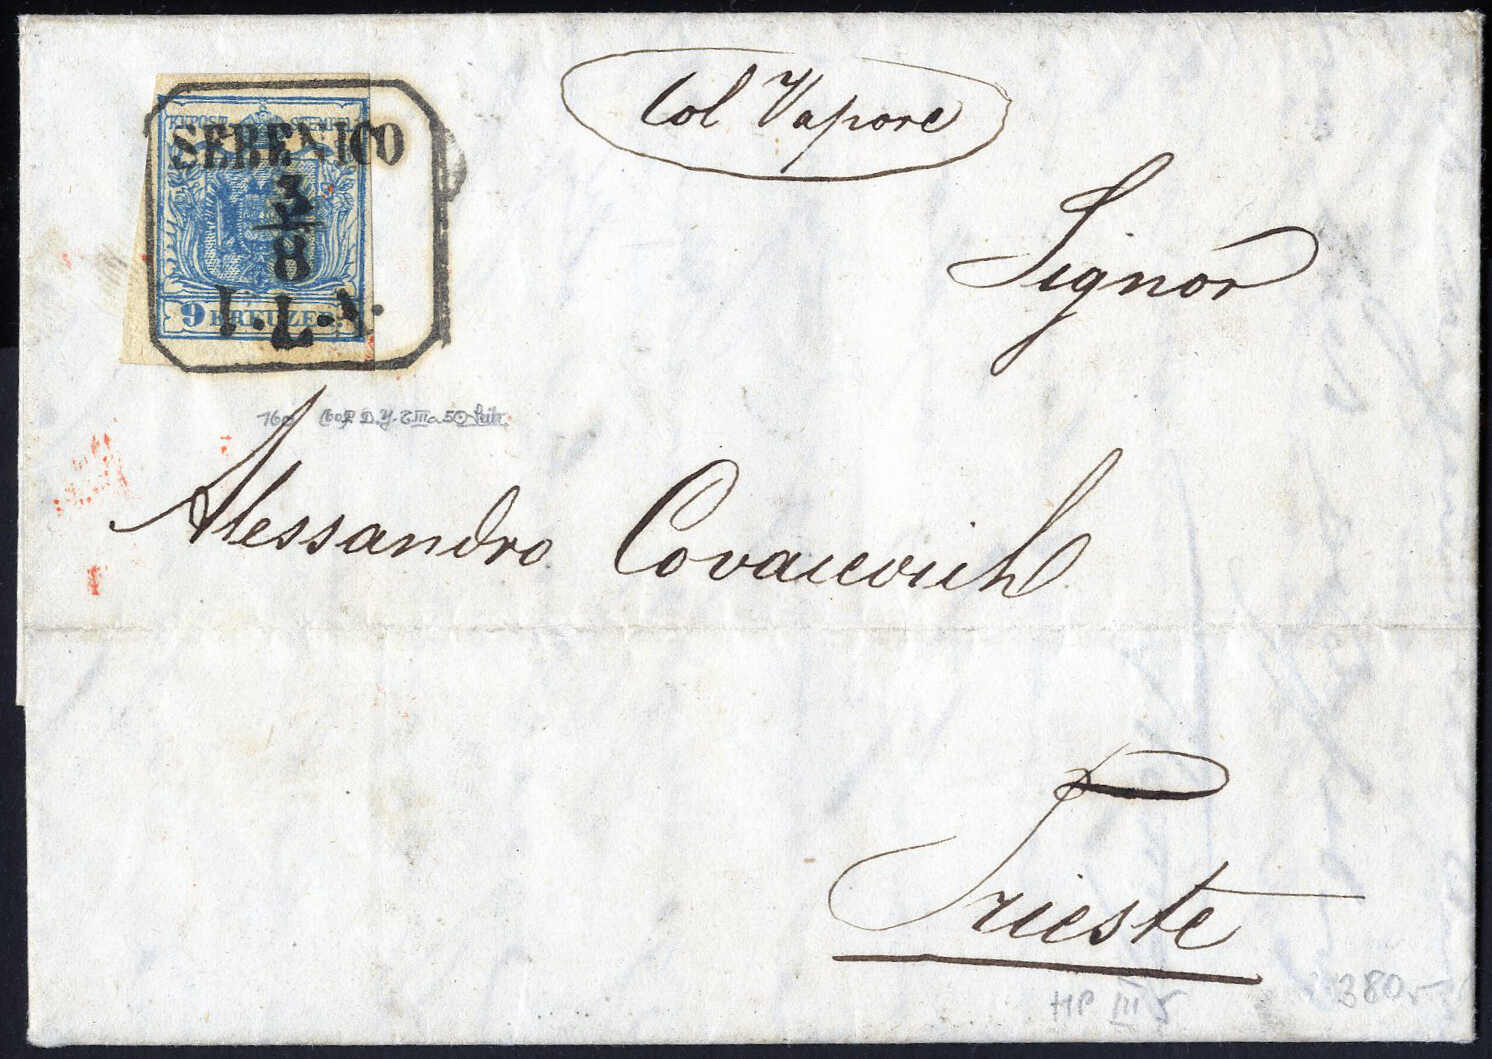 Col Vapore
KKPOST-STEMPEL
SEBENICO
3
8
I.L.A.
9 KREUZER
Signor
Alessandro Covacevich
Trieste
HP III 5
380